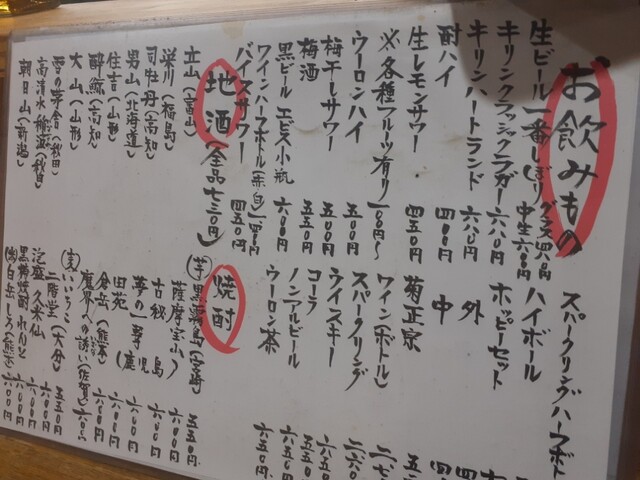 お飲みもの
生ビール一番しぼり グラス四八〇円
中生六〇〇円
キリンクラシックラガー 六八〇円
キリンハートランド 六八〇円
酎ハイ 四〇〇円
生レモンサワー 四五〇円
※各種フルーツ有り 一〇〇円〜
ウーロンハイ 五〇〇円
梅干しサワー 五〇〇円
梅酒 五〇〇円
黒ビール エビス小瓶 六〇〇円
ワインハーフボトル(赤・白)
バイスサワー 四五〇円
地酒(全品七三〇円)
立山(富山)
栄川(福島)
司牡丹(高知)
男山(北海道)
住吉(山形)
酔鯨(高知)
大山(山形)
雪の茅舎(秋田)
高清水 (秋田)
朝日山(新潟)
スパークリングハーフボト
ハイボール
ホッピーセット
外
中
菊正宗
ワイン(ボトル)
スパークリング
ウイスキー
コーラ
ノンアルビール
ウーロン茶 六五〇円
焼酎
芋 黒霧島(宮崎) 五五〇円
薩摩宝山 六〇〇円
古秘 六〇〇円
夢の一 六〇〇円
田苑 六〇〇円
倉岳(熊本) 六〇〇円
魔界への誘い(佐賀)
麦 いいちこ 五五〇円
二階堂(大分) 六〇〇円
泡盛 久米仙 六〇〇円
黒糖焼酎 れんと 六〇〇円
白岳しろ(熊本) 六〇〇円